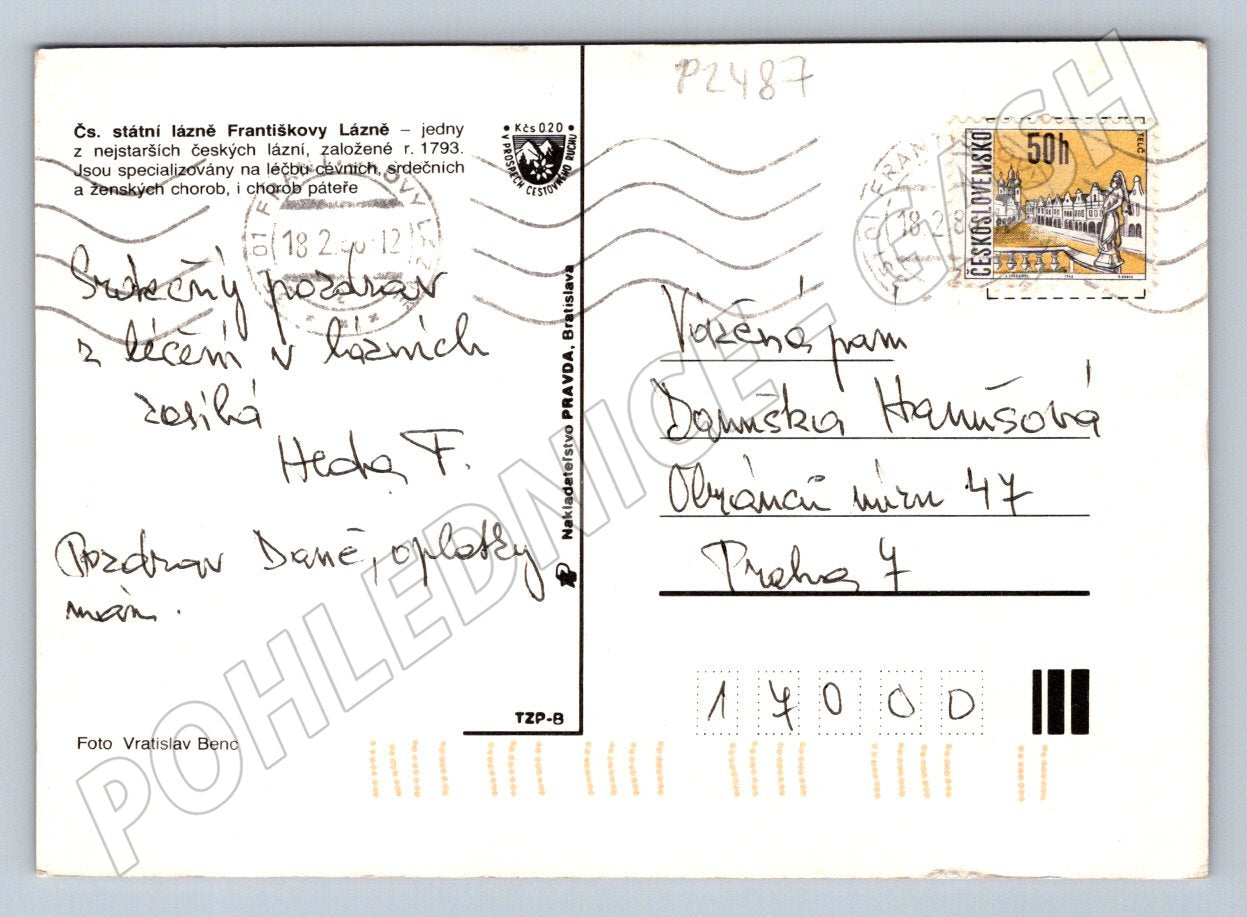 P2487
Čs. státní lázně Františkovy Lázně – jedny
z nejstarších českých lázní, založené r. 1793.
Jsou specializovány na léčbu cévních, srdečních
a ženských chorob, i chorob páteře
Kčs 0.20
V PROSPĚCH CESTOVNÉHO RUCHU
18.2. 12
Srdečný pozdrav
z léčení v lázních
zasílá
Heda F.
Pozdrav Daně, oplatky
mám.
Foto Vratislav Benc
TZP-B
Nakladateľstvo PRAVDA, Bratislava
18.2.8
ČESKOSLOVENSKO
50h
TELČ
Vážená paní
Danuška Hanušová
Obránců míru 47
Praha 7
17000
POHLEDNICE - GNSH